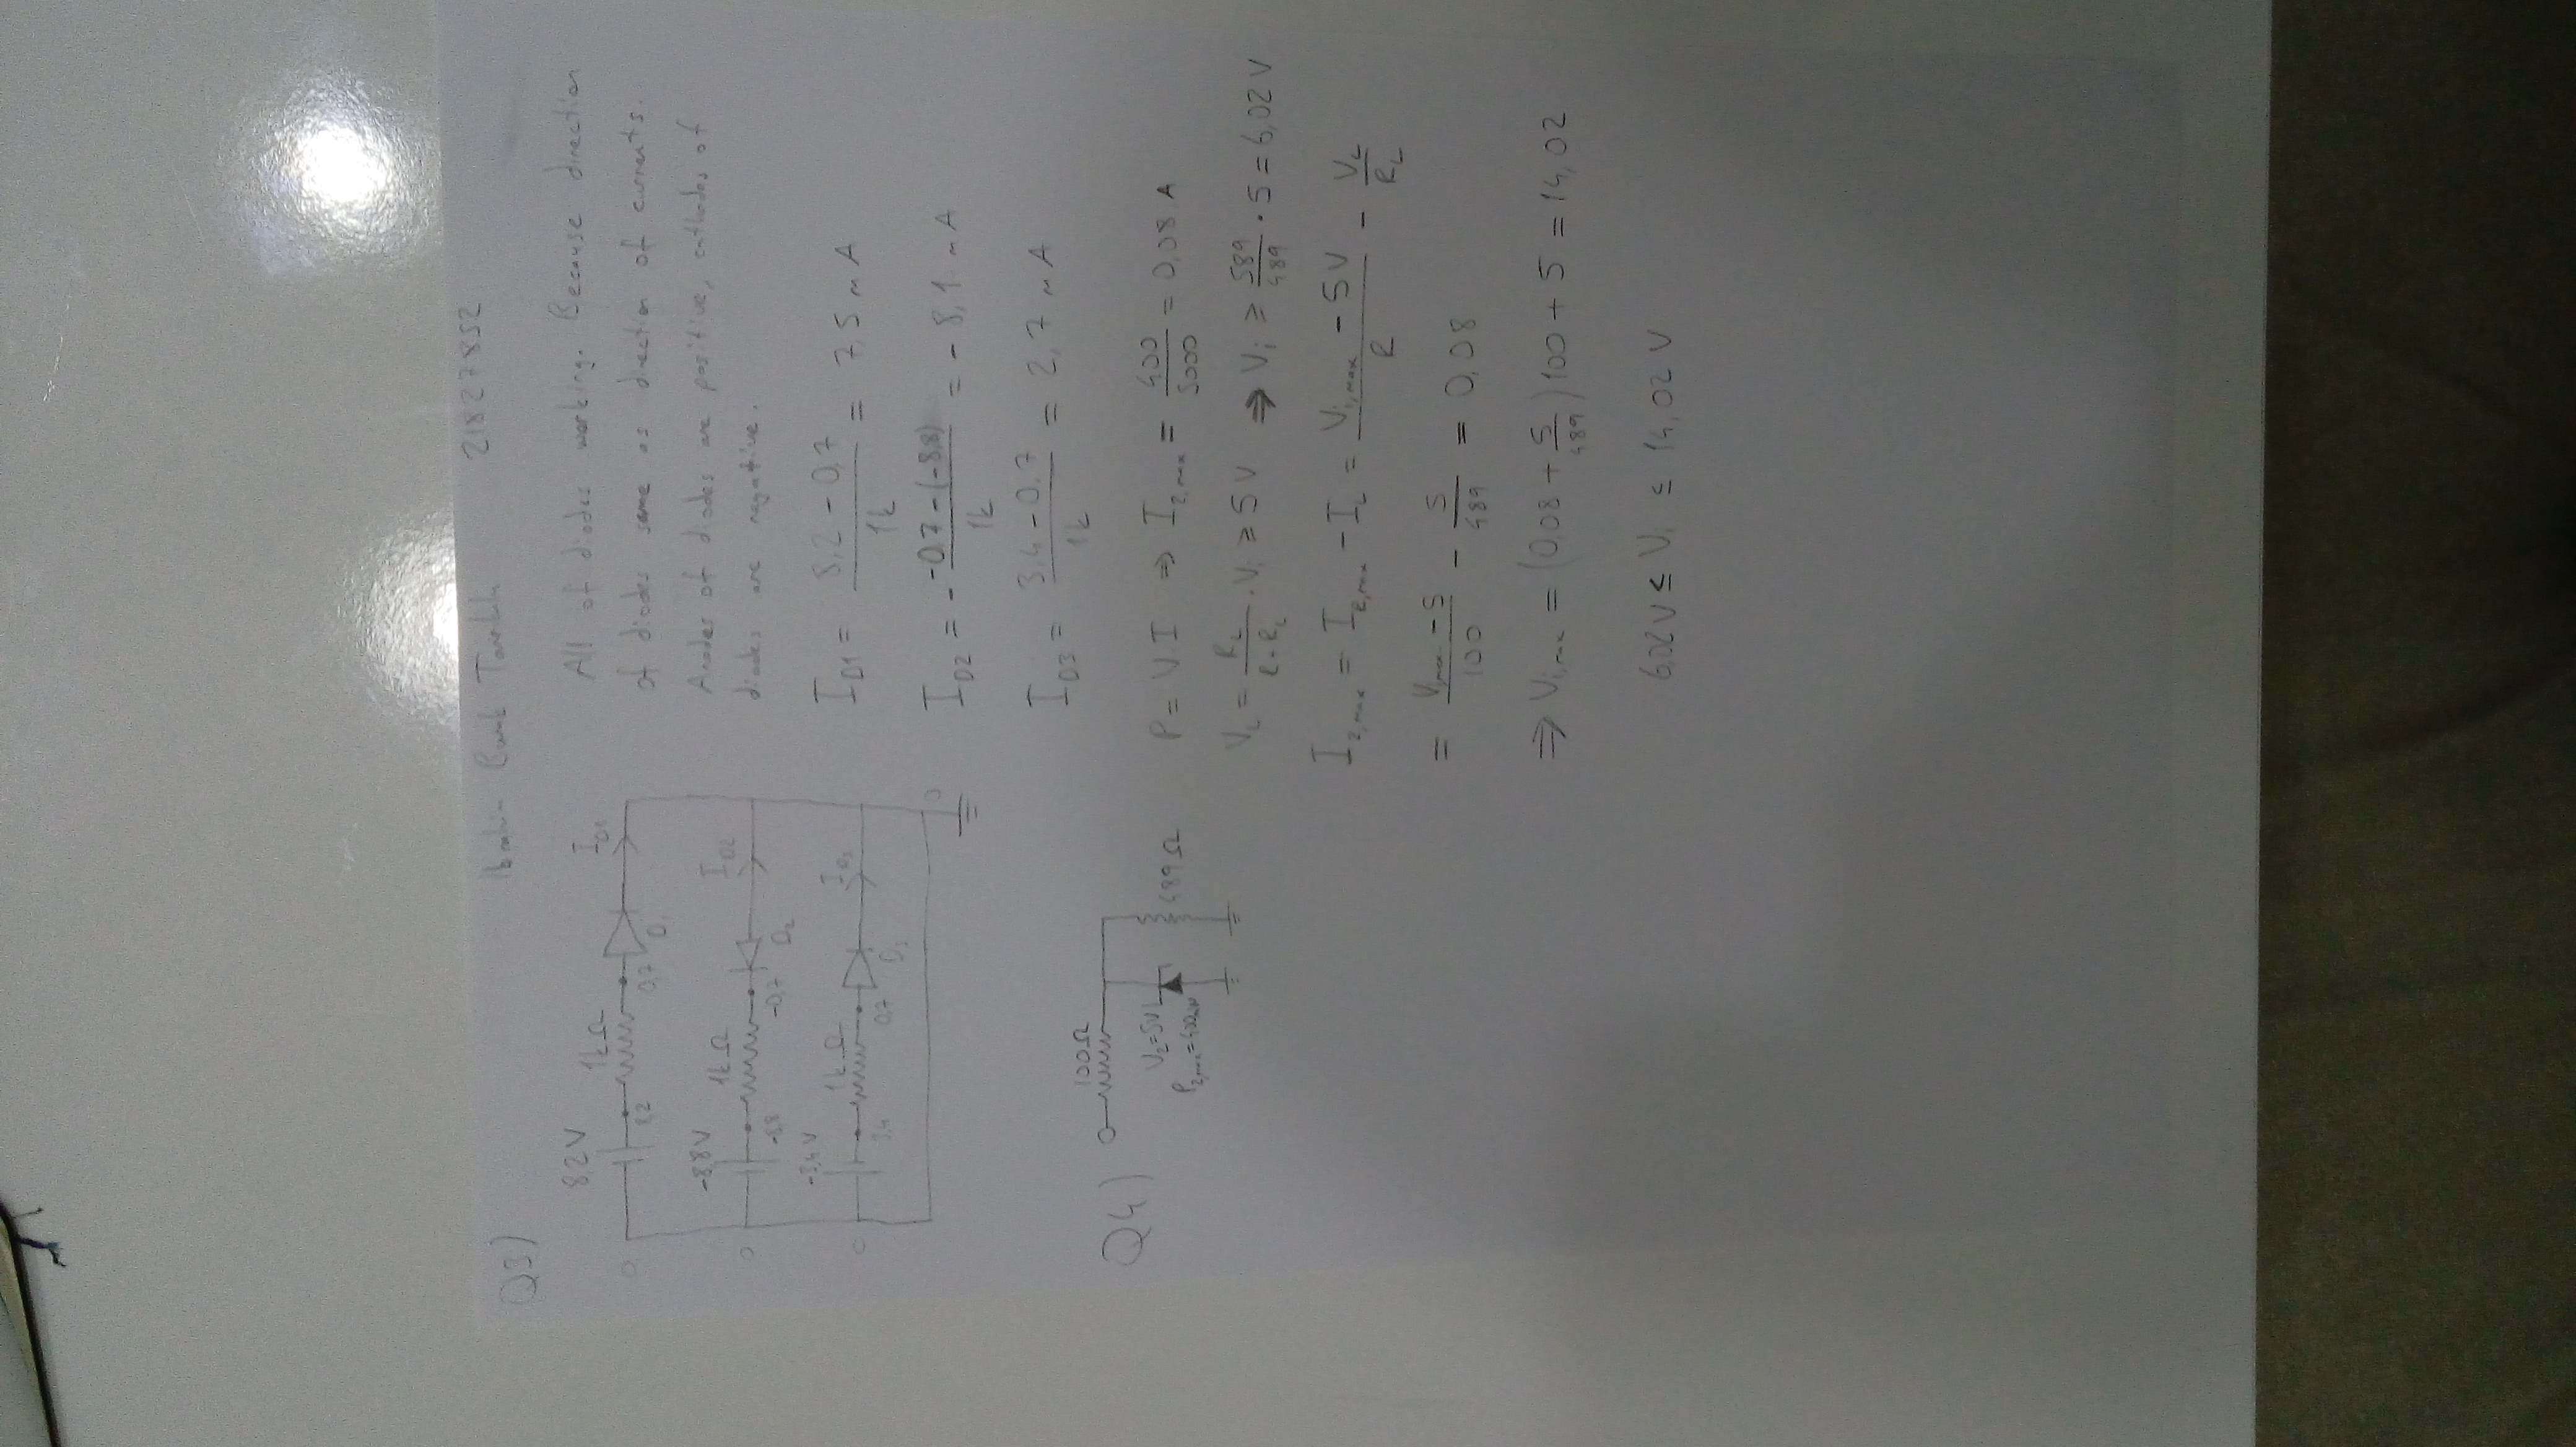 Q3)
Ibrahim Burak Tanrıkulu 21827852
8,2V 1kΩ I_D1
8,2 0,7 D₁
-8,8V 1kΩ I_D2
-8,8 -0,7 D₂
-3,4V 1kΩ I_D3
3,4 0,7 D₃
All of diodes working. Because direction
of diodes same as direction of currents.
Anodes of diodes are positive, cathodes of
diodes are negative.
I_D1 = (8,2 - 0,7)/1k = 7,5 mA
I_D2 = - (-0,7 - (-8,8))/1k = - 8,1 mA
I_D3 = (3,4 - 0,7)/1k = 2,7 mA
Q4)
100Ω
V_Z=5V
P_Z,max=400mW
489Ω
P = V.I ⇒ I_Z,max = 400/5000 = 0,08 A
V_L = R_L/(R+R_L) . V_i ≥ 5V ⇒ V_i ≥ 589/489 · 5 = 6,02 V
I_Z,max = I_R,max - I_L = (V_i,max - 5V)/R - V_L/R_L
= (V_i,max - 5)/100 - 5/489 = 0,08
⇒ V_i,max = (0,08 + 5/489)100 + 5 = 14,02
6,02V ≤ V_i ≤ 14,02 V